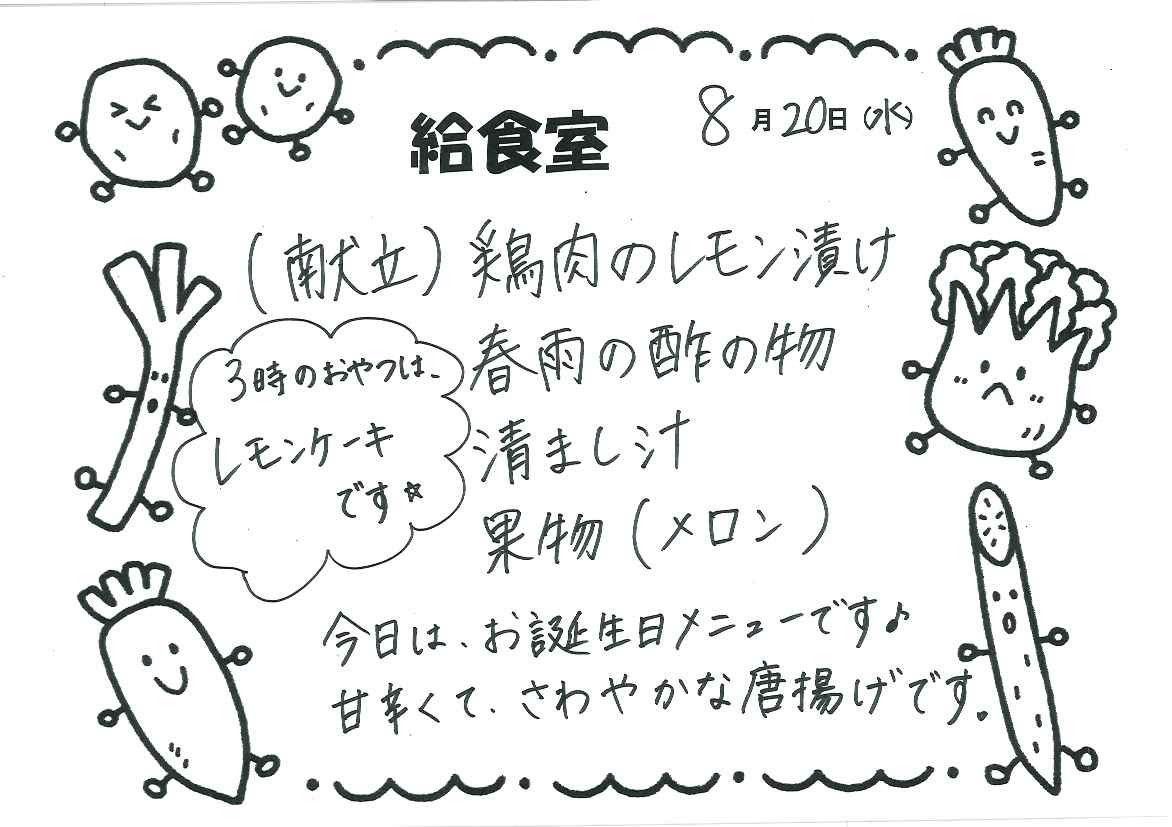 給食室 8月20日(水)
(献立) 鶏肉のレモン漬け
春雨の酢の物
清まし汁
果物(メロン)
3時のおやつは、
レモンケーキ
です☆
今日は、お誕生日メニューです♪
甘辛くて、さわやかな唐揚げです。